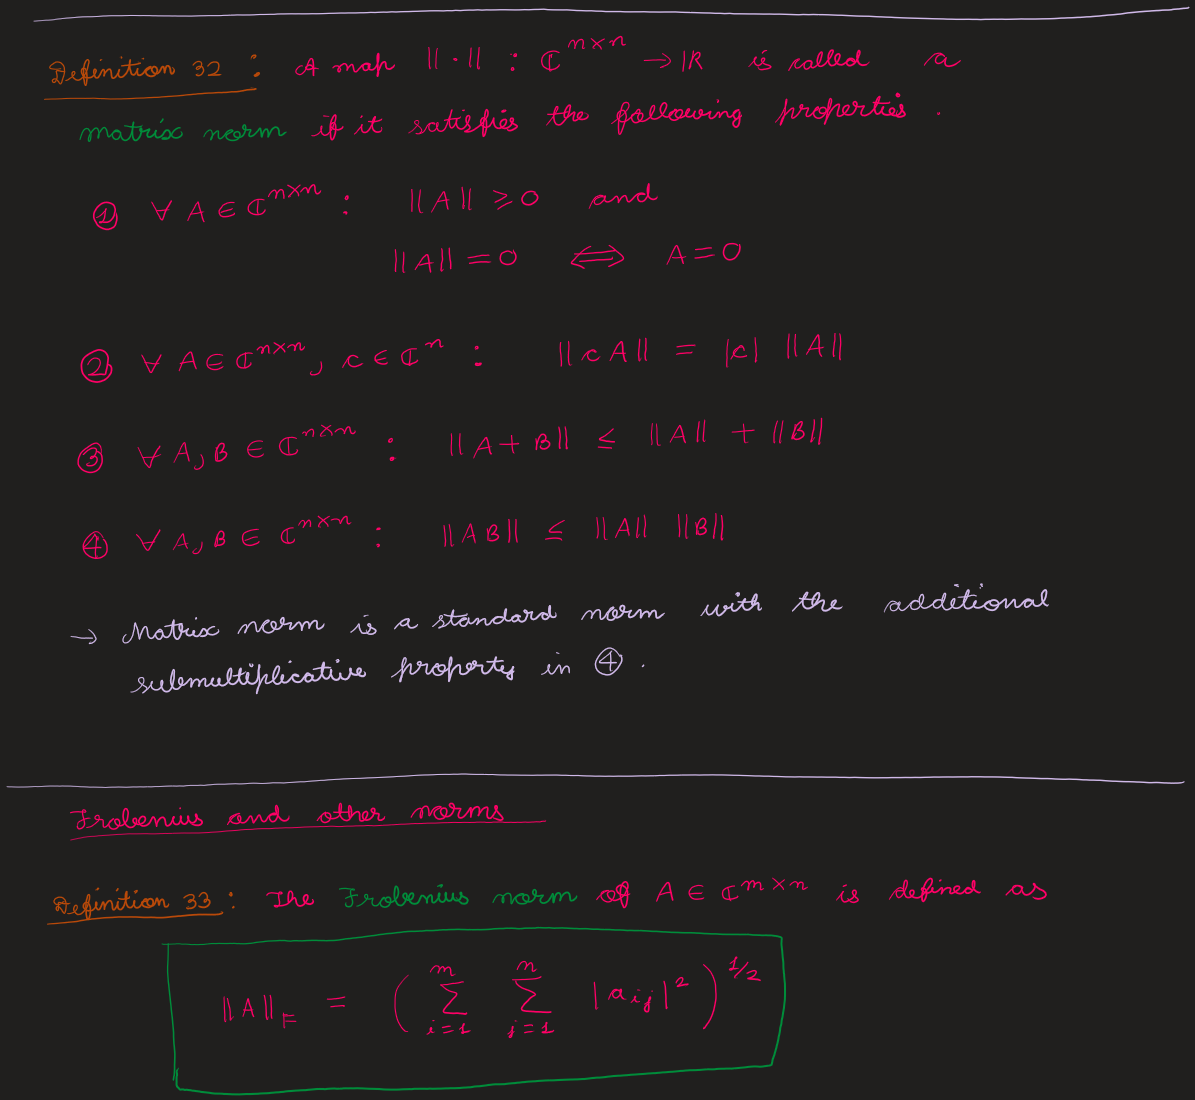 Definition 32 : A map ||·|| : ℂ^{n×n} → ℝ is called a
matrix norm if it satisfies the following properties.
① ∀ A ∈ ℂ^{n×n} : ||A|| ⩾ 0 and
||A|| = 0 ⟺ A = 0
② ∀ A ∈ ℂ^{n×n}, c ∈ ℂ^n : ||cA|| = |c| ||A||
③ ∀ A, B ∈ ℂ^{n×n} : ||A + B|| ≤ ||A|| + ||B||
④ ∀ A, B ∈ ℂ^{n×n} : ||AB|| ≤ ||A|| ||B||
→ Matrix norm is a standard norm with the additional
submultiplicative property in ④.
Frobenius and other norms
Definition 33 : The Frobenius norm of A ∈ ℂ^{m×n} is defined as
||A||_F = ( ∑_{i=1}^{m} ∑_{j=1}^{n} |a_{ij}|^2 )^{1/2}